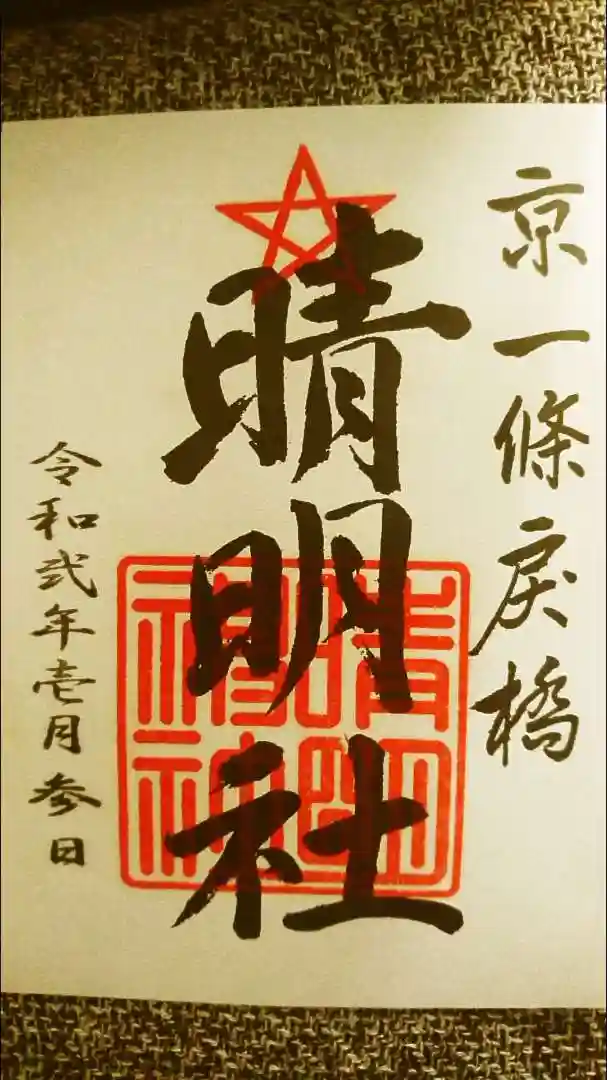 京一條戻橋
晴明社
令和弐年壱月参日